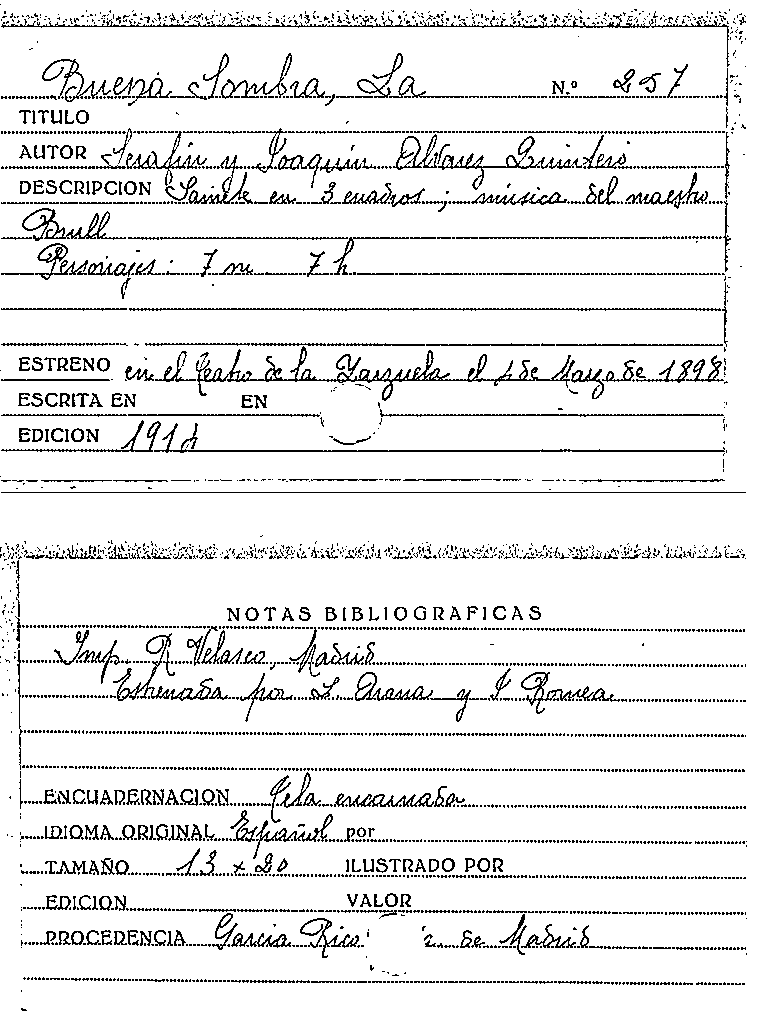 Buena Sombra, La N.º 257
TITULO
AUTOR Serafin y Joaquin Alvarez Quintero
DESCRIPCION Sainete en 3 cuadros; música del maestro
Brull
Personajes: 7 m. 7 h.
ESTRENO en el Teatro de la Zarzuela el 4 de Marzo de 1898
ESCRITA EN EN
EDICION 1914
NOTAS BIBLIOGRAFICAS
Imp. R Velasco, Madrid
Estrenada por L. Arana y J Romea.
ENCUADERNACION Tela encarnada
IDIOMA ORIGINAL Español por
TAMAÑO 13 x 20 ILUSTRADO POR
EDICION VALOR
PROCEDENCIA Garcia Rico de Madrid